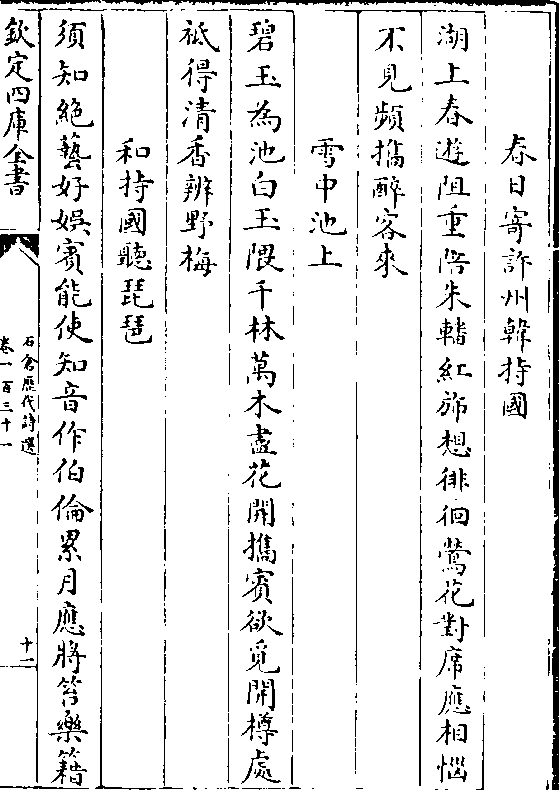 春日寄許州韓持國
湖上春遊阻重陪朱轓紅旆想徘徊鶯花對席應相惱
不見頻攜醉客來
雪中池上
碧玉為池白玉隈千林萬木盡花開攜賓欲覓開樽處
祗得清香辨野梅
和持國聽琵琶
須知絕藝好娛賓能使知音作伯倫累月應將笞樂籍
欽定四庫全書
石倉歷代詩選
卷一百三十一
十一